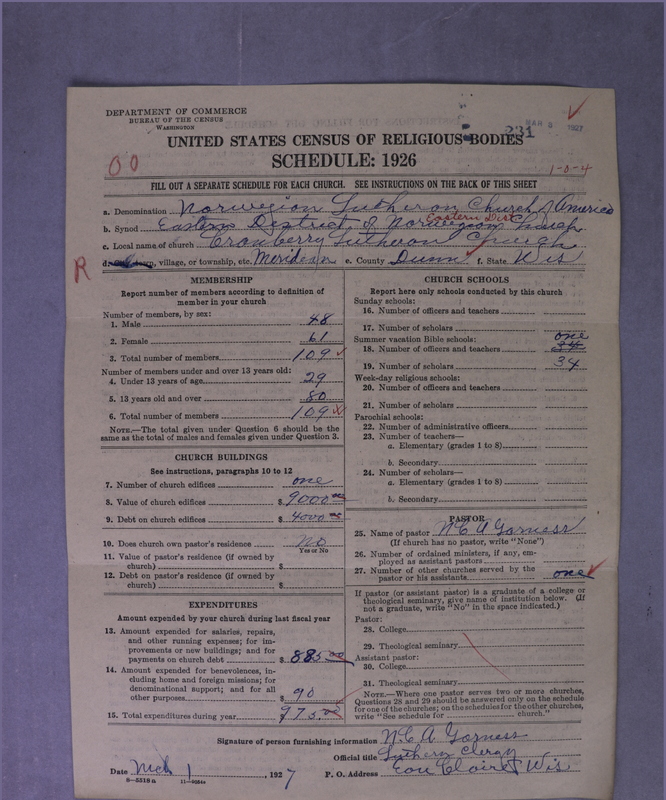 DEPARTMENT OF COMMERCE
BUREAU OF THE CENSUS
WASHINGTON
231 MAR 3 1927
UNITED STATES CENSUS OF RELIGIOUS BODIES
SCHEDULE: 1926
00
1-0-4
FILL OUT A SEPARATE SCHEDULE FOR EACH CHURCH. SEE INSTRUCTIONS ON THE BACK OF THIS SHEET
a. Denomination Norwegian Lutheran Church of America
b. Synod Eastern District of Norwegian Church Eastern Dist
c. Local name of church Cranberry Lutheran Church
R
village, or township, etc. Meridean e. County Dunn f. State Wis
MEMBERSHIP
Report number of members according to definition of
member in your church
Number of members, by sex:
1. Male 48
2. Female 61
3. Total number of members 109
Number of members under and over 13 years old:
4. Under 13 years of age 29
5. 13 years old and over 80
6. Total number of members 109
NOTE.—The total given under Question 6 should be the
same as the total of males and females given under Question 3.
CHURCH BUILDINGS
See instructions, paragraphs 10 to 12
7. Number of church edifices one
8. Value of church edifices $ 9000
9. Debt on church edifices $ 4000
10. Does church own pastor's residence No
Yes or No
11. Value of pastor's residence (if owned by
church) $
12. Debt on pastor's residence (if owned by
church) $
EXPENDITURES
Amount expended by your church during last fiscal year
13. Amount expended for salaries, repairs,
and other running expenses; for im-
provements or new buildings; and for
payments on church debt $ 885.00
14. Amount expended for benevolences, in-
cluding home and foreign missions; for
denominational support; and for all
other purposes $ 90
15. Total expenditures during year $ 975.00
CHURCH SCHOOLS
Report here only schools conducted by this church
Sunday schools:
16. Number of officers and teachers
17. Number of scholars
Summer vacation Bible schools: one
18. Number of officers and teachers 34
19. Number of scholars 34
Week-day religious schools:
20. Number of officers and teachers
21. Number of scholars
Parochial schools:
22. Number of administrative officers
23. Number of teachers—
a. Elementary (grades 1 to 8)
b. Secondary
24. Number of scholars—
a. Elementary (grades 1 to 8)
b. Secondary
PASTOR
25. Name of pastor N C A Garness
(If church has no pastor, write "None")
26. Number of ordained ministers, if any, em-
ployed as assistant pastors
27. Number of other churches served by the
pastor or his assistants one
If pastor (or assistant pastor) is a graduate of a college or
theological seminary, give name of institution below. (If
not a graduate, write "No" in the space indicated.)
Pastor:
28. College
29. Theological seminary
Assistant pastor:
30. College
31. Theological seminary
NOTE.—Where one pastor serves two or more churches,
Questions 28 and 29 should be answered only on the schedule
for one of the churches; on the schedules for the other churches,
write "See schedule for church."
Signature of person furnishing information N C A Garness
Official title Luthern Clergy
Date Mch 1, 1927 P. O. Address Eau Claire Wis
8-5518a